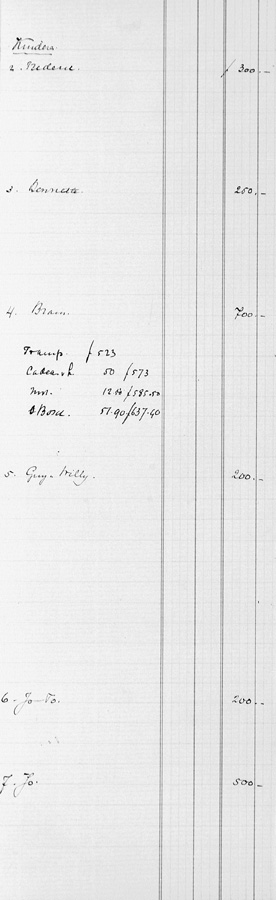 Kinders
2. Frederic. f 300.-
3. Donneke. 250.-
4. Bram. 700.-
Transp. f 523
Cadeau 50 f 573
12.50 f 585.50
51.90 f 637.40
5. Guy-Willy. 200.-
6. Jo-To. 200.-
7. Jo. 500.-